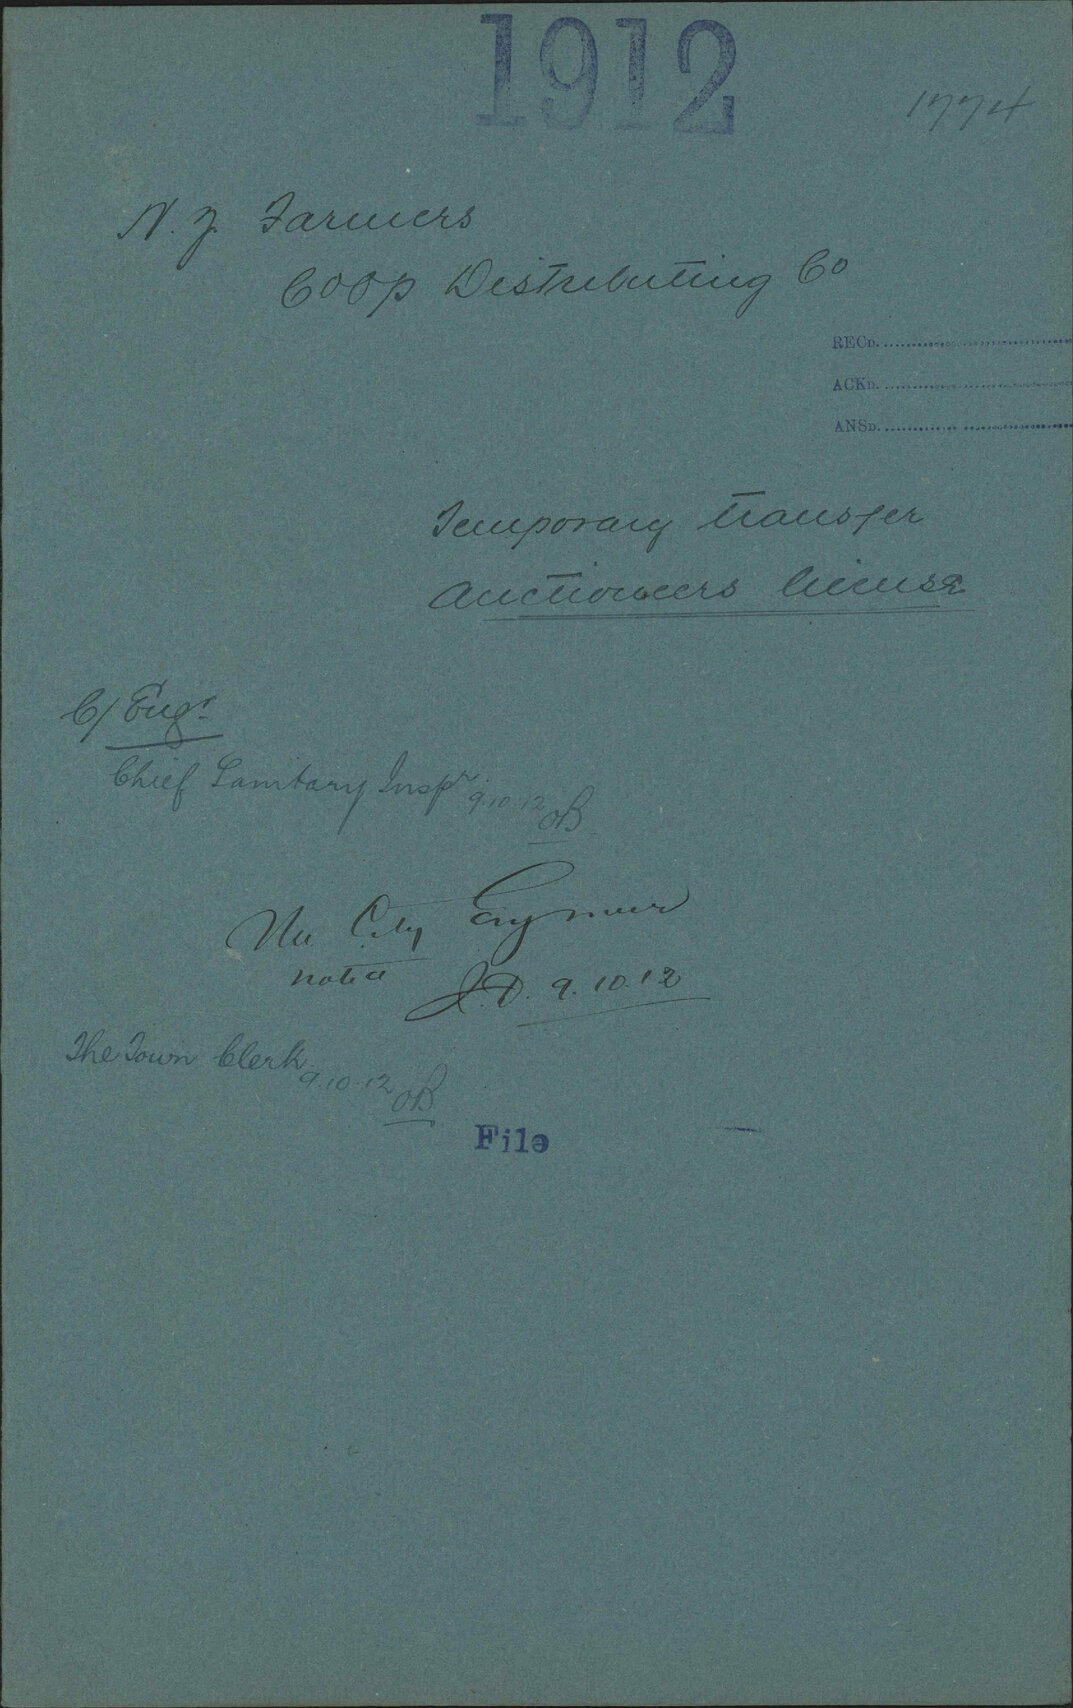 1912
1774
N. Z. Farmers
Coop Distributing Co
RECD.
ACKD.
ANSD.
Temporary transfer
Auctioneers license
C/ Engr.
Chief Sanitary Inspr. 9.10.12 OB
The City Engineer
noted J.D. 9.10.12
The Town Clerk 9.10.12 OB
File